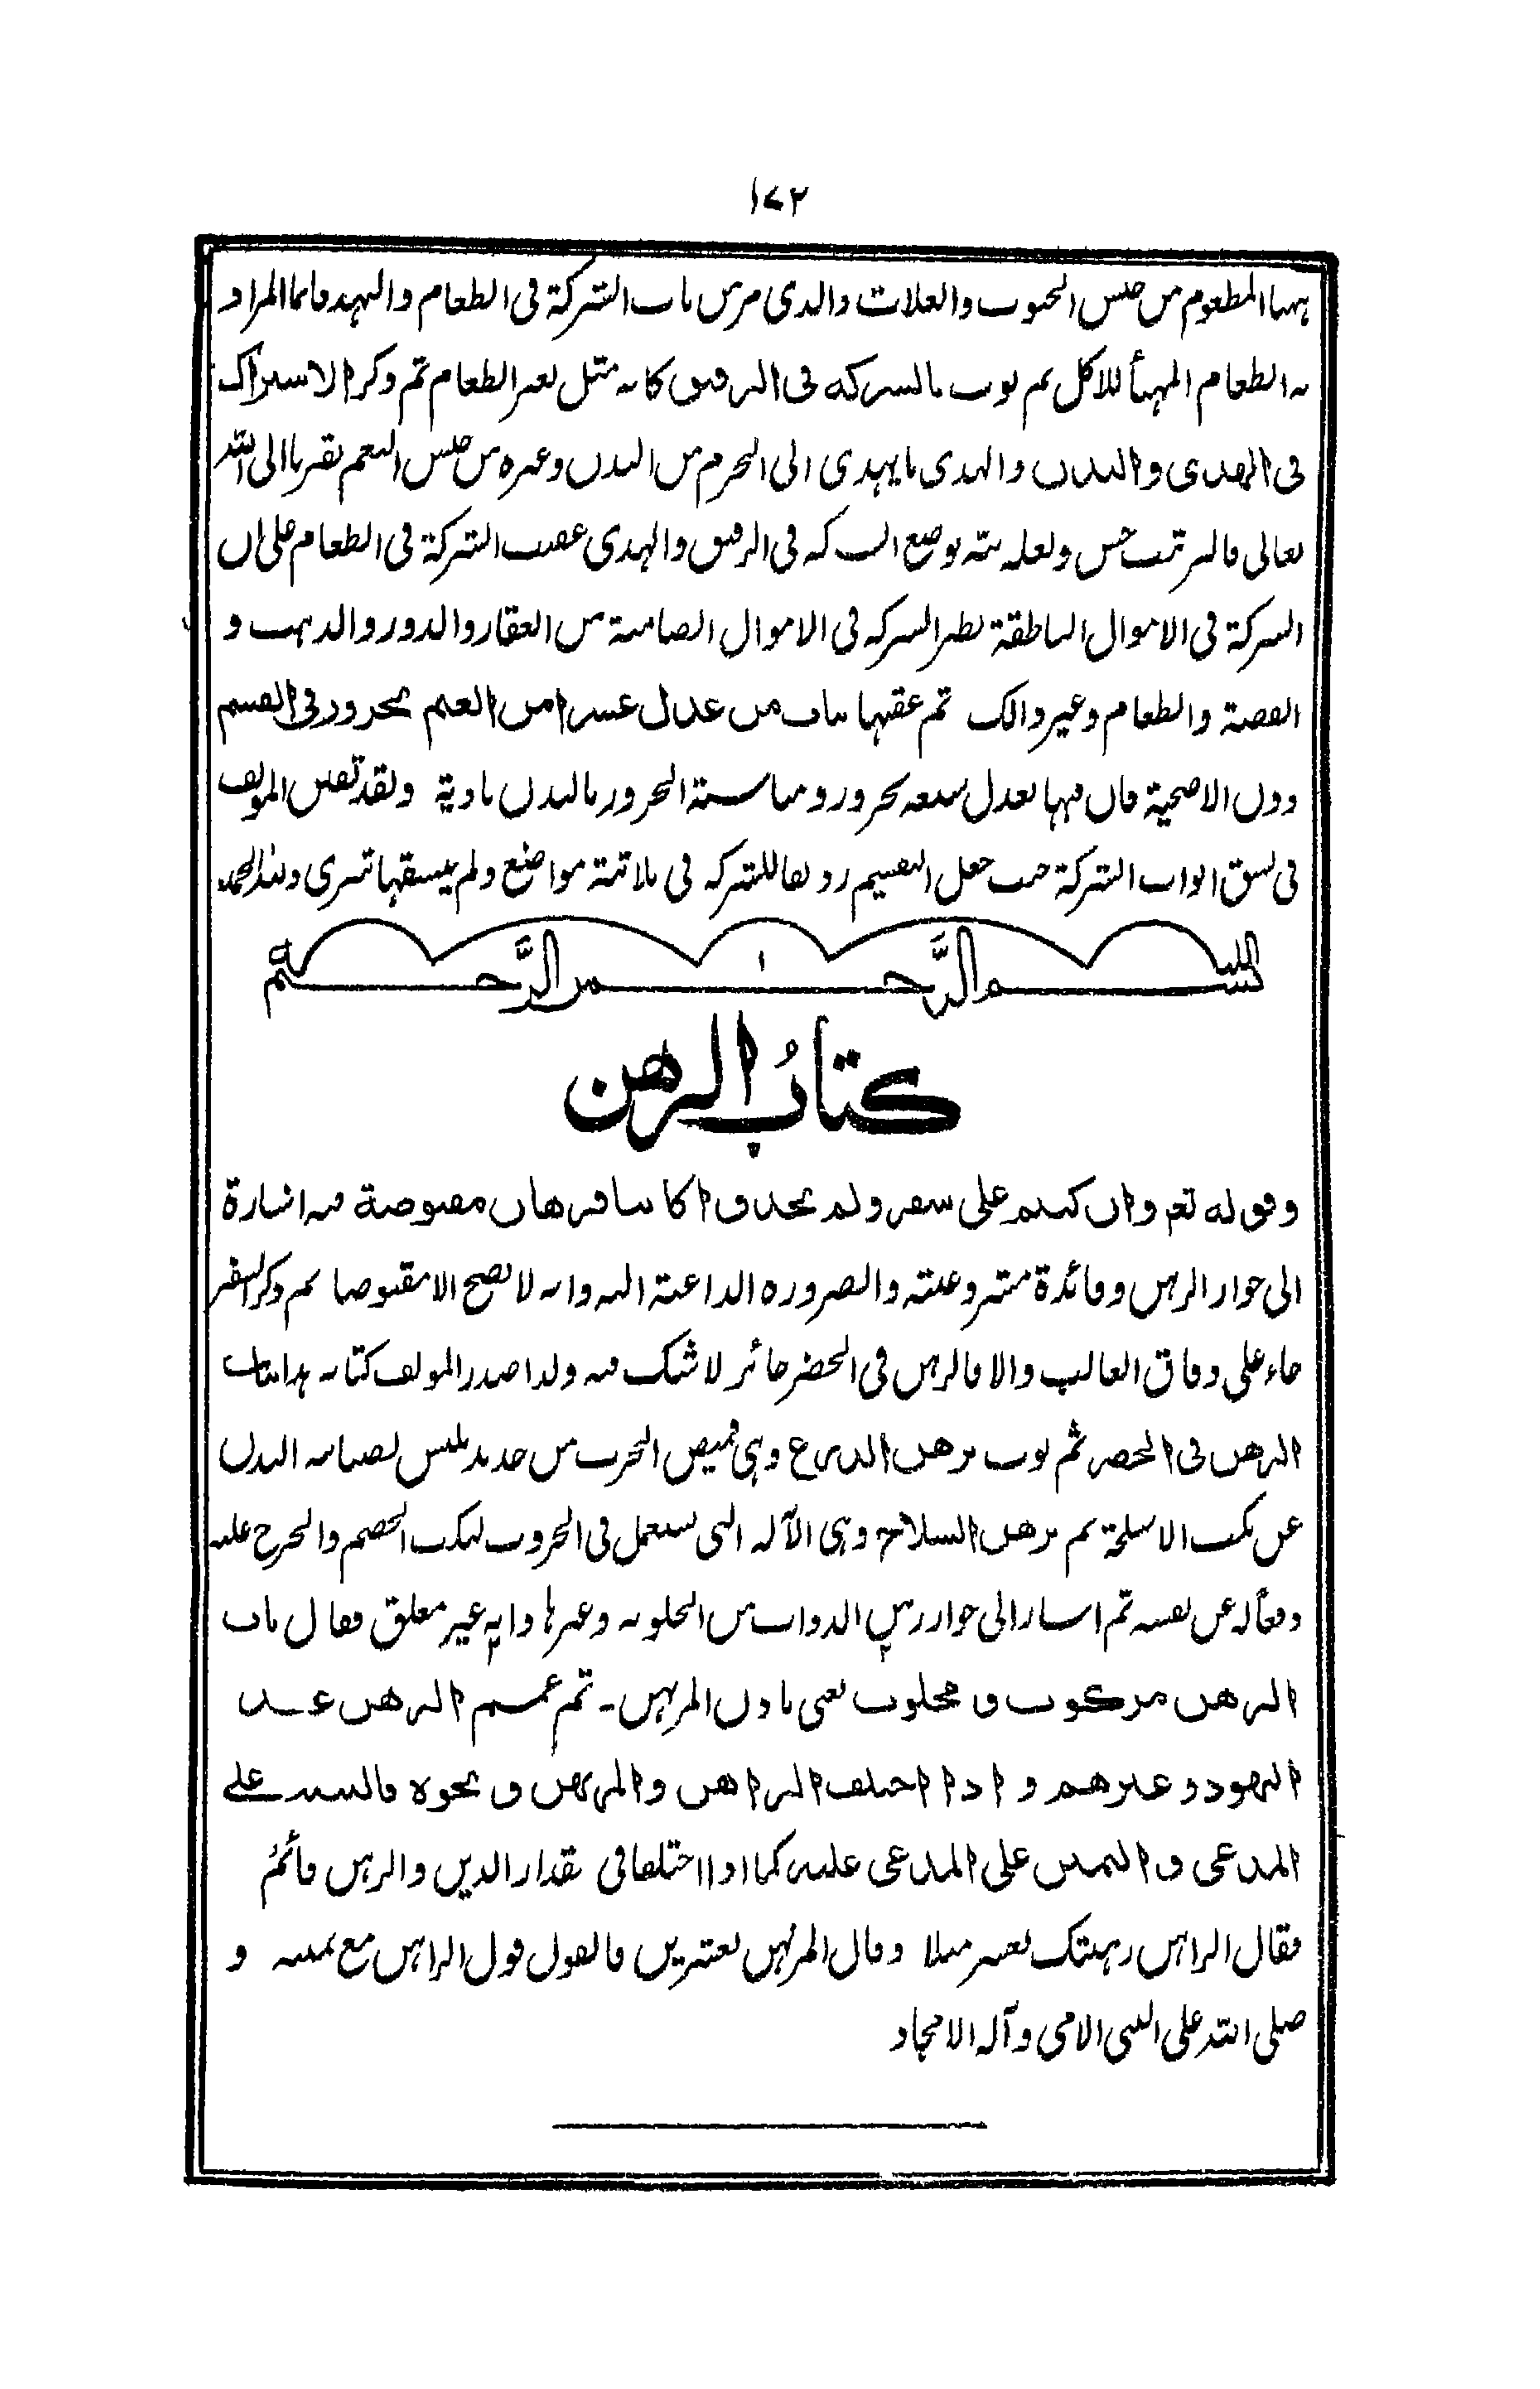 ١٧٢
ههنا المطعوم من جنس الحبوب والغلات والذى مر من باب الشركة فى الطعام والنهد فانما المراد
به الطعام المهيأ للاكل ثم بوب بالشركة فى الرقيق كانه مثل بعير الطعام ثم ذكر الاشتراك
فى الهدى والبدن والهدى ما يهدى الى الحرم من البدن وغيره من جنس النعم تقربا الى الله
تعالى ولعله بوضع الشركة فى الرقيق والهدى عقيب الشركة فى الطعام على ان
الشركة فى الاموال الناطقة نظير الشركة فى الاموال الصامتة من العقار والدور والذهب و
الفضة والطعام وغير ذالك ثم عقبها بباب من عدل عشرا من الغنم بجزور فى القسم
دون الاضحية فان فيها تعدل سبعة بجزور ومناسبة الجزور بالبدن بادية ولقد تفنن المولف
فى نسق ابواب الشركة حيث جعل التقسيم رديفا للشركة فى ثلاثة مواضع ولم ينسقها تترى ولله الحمد
بسم الله الرحمن الرحيم
كتابُ الرهن
وقوله تع وان كنتم على سفر ولم تجدوا كاتبا فرهان مقبوضة فيه اشارة
الى جواز الرهن وفائدة مشروعيته والضرورة الداعية اليه وانه لا يصح الا مقبوضا ثم ذكر السفر
جاء على وفاق الغالب والا فالرهن فى الحضر جائز لا شك فيه ولذا صدر المولف كتابه هذا بباب
الرهن فى الحضر ثم بوب برهن الدرع وهى قميص الحرب من حديد يلبس لصيانة البدن
عن نكب الاسلحة ثم برهن السلاح وهى الآلة التى تستعمل فى الحروب لنكب الخصم والجرح عليه
ودفعا له عن نفسه ثم اشار الى جواز رهن الدواب من الحلوبة وغيرها وانه غير مغلق فقال باب
الرهن مركوب و محلوب يعنى باذن المرتهن۔ ثم عمم الرهن عند
اليهود وغيرهم و اذا اختلف الراهن والمرتهن و نحوه فالبينة على
المدعى و اليمين على المدعى عليه كما اذا اختلفا فى مقدار الدين والرهن قائم
فقال الراهن رهنتك بعشر مثلا وقال المرتهن بعشرين فالقول قول الراهن مع يمينه و
صلى الله على النبى الامى وآله الامجاد